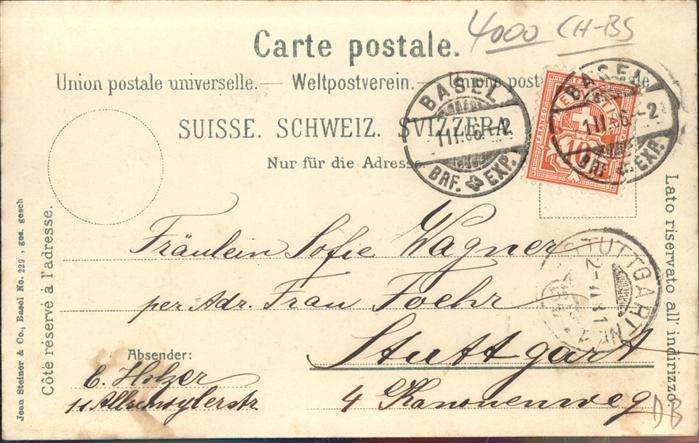 4000 CH-BS
Carte postale.
Union postale universelle. — Weltpostverein. —
SUISSE. SCHWEIZ. SVIZZERA.
Nur für die Adresse
BASEL
BRF. EXP.
BASEL
BRF. EXP.
10
Côté réservé à l'adresse.
Jean Steiner & Co., Basel No. 229 . ges. gesch
Lato riservato all' indirizzo
Fräulein Sofie Wagner
per Adr. Frau Foehr
Stuttgart
4 Kanonenweg
STUTTGART
Absender:
E. Holzer
11 Allschwylerstr
DB